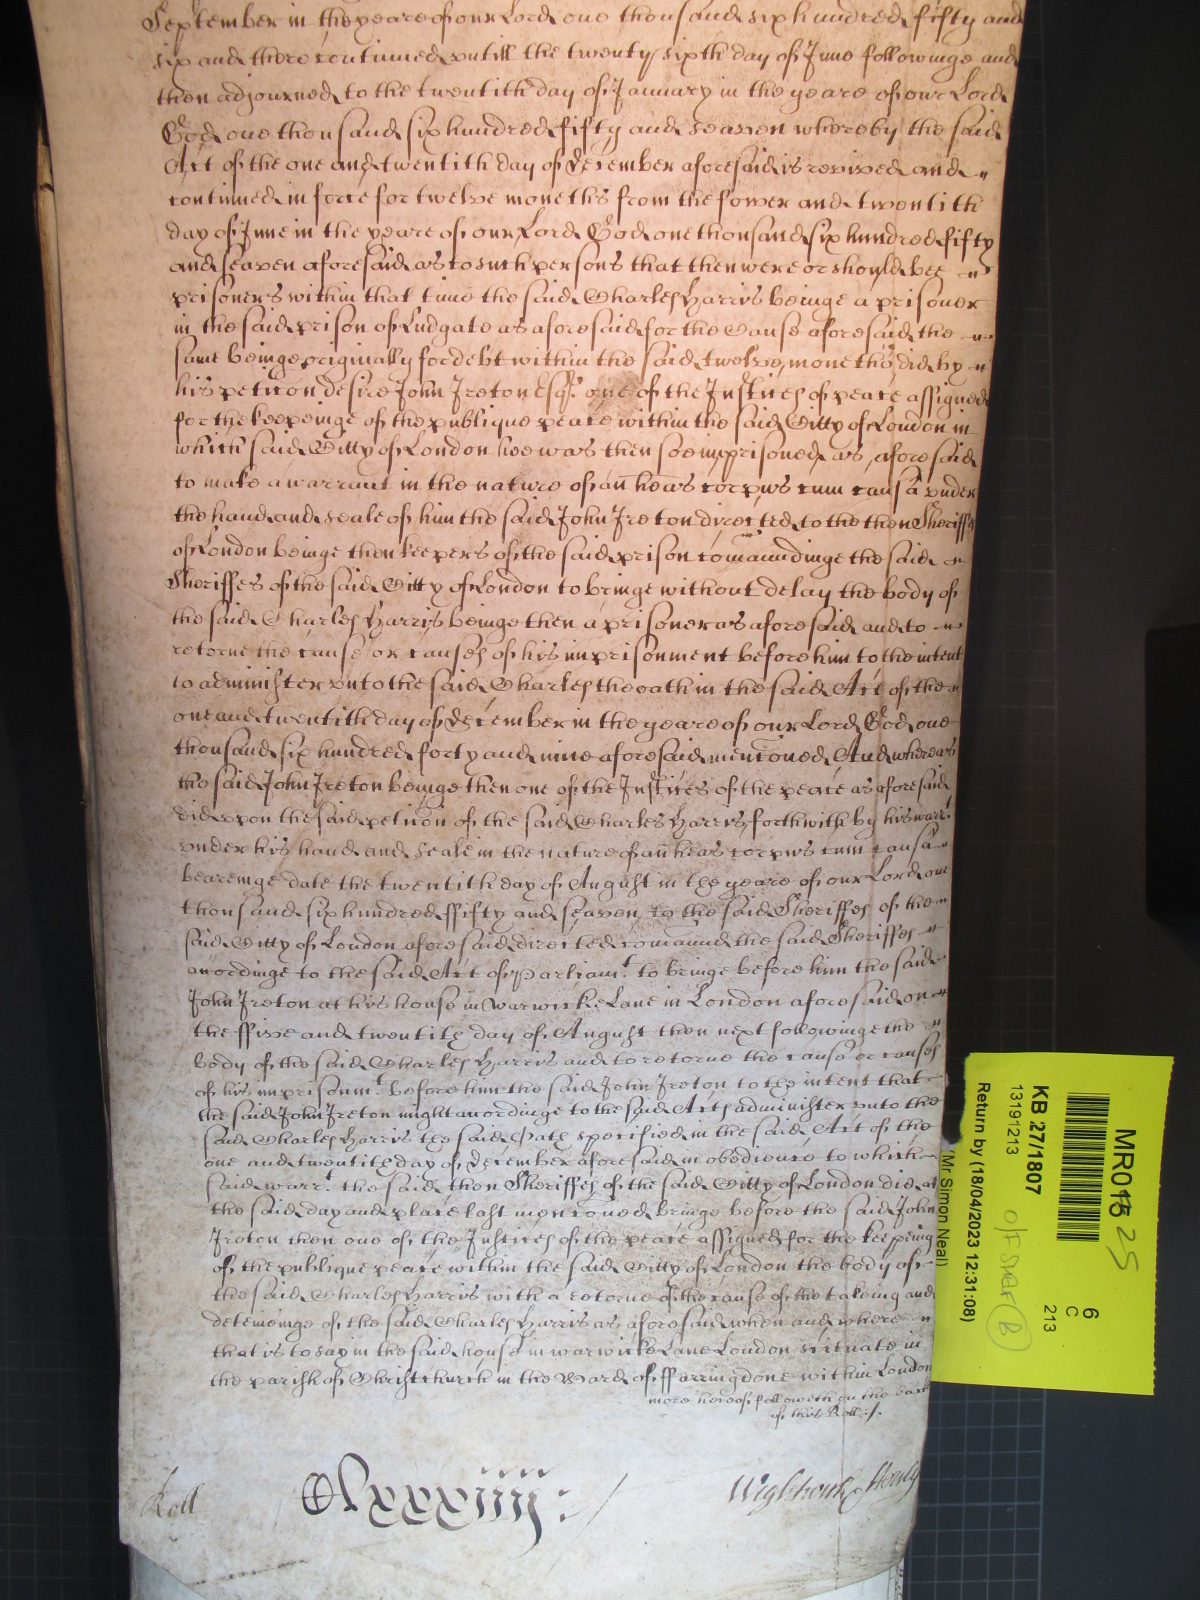 September in the yeare of our Lord one thousand six hundred fifty and
six and there continued untill the twenty sixth day of June followinge and
then adjourned to the twentith day of January in the yeare of our Lord
God one thousand six hundred fifty and seaven whereby the said
Act of the one and twentith day of December aforesaid is revived and
continued in force for twelve moneths from the fower and twentith
day of June in the yeare of our Lord God one thousand six hundred fifty
and seaven aforesaid as to such persons that then were or should bee
prisoners within that time the said Charles Harris beinge a prisoner
in the said prison of Ludgate as aforesaid for the Cause aforesaid the
same beinge originally for debt within the said twelve moneths did by
his peticon desire John Ireton Esqr. one of the Justices of peace assigned
for the keepeinge of the publique peace within the said Citty of London in
which said Citty of London hee was then soe imprisoned as aforesaid
to make a warrant in the nature of an heas corpus cum causa under
the hand and seale of him the said John Ireton directed to the then Sheriffes
of London beinge then keepers of the said prison comaundinge the said
Sheriffes of the said Citty of London to bringe without delay the body of
the said Charles Harris beinge then a prisoner as aforesaid and to
retorne the cause or causes of his imprisonment before him to the intent
to administer unto the said Charles the oath in the said Act of the
one and twentith day of December in the yeare of our Lord God one
thousand six hundred forty and nine aforesaid mentioned And whereas
the said John Ireton beinge then one of the Justices of the peace as aforesaid
did upon the said peticon of the said Charles Harris forthwith by his warrt
under his hand and seale in the nature of an heas corpus cum causa
beareinge date the twentith day of August in the yeare of our Lord one
thousand six hundred ffifty and seaven to the said Sheriffes of the
said Citty of London aforesaid directed comaund the said Sheriffes
accordinge to the said Act of Parliamt. to bringe before him the said
John Ireton at his house in Warwicke Lane in London aforesaid on
the ffive and twentith day of August then next followinge the
body of the said Charles Harris and to retorne the cause or causes
of his imprisonmt. before him the said John Ireton to the intent that
the said John Ireton might accordinge to the said Acts administer unto the
said Charles Harris the said Oath specified in the said Act of the
one and twentith day of December aforesaid in obedience to which
said warrt. the said then Sheriffes of the said Citty of London did at
the said day and place last mentioned bringe before the said John
Ireton then one of the Justices of the peace assigned for the keepeing
of the publique peace within the said Citty of London the body of
the said Charles Harris with a retorne of the cause of the takeing and
deteineinge of the said Charles Harris as aforesaid when and where
that is to say in the said house in Warwicke Lane London scituate in
the parish of Christchurch in the Ward of ffarringdone within London
more hereof followeth on the back
of this Roll:/.
Roll
Wightwick Henly
MR018 25
6
C
213
KB 27/1807
13191213
O/F SHELF (B)
Return by (18/04/2023 12:31:08)
(Mr Simon Neal)